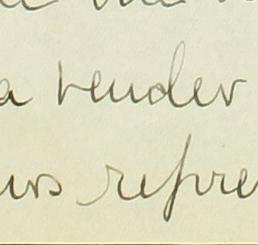 a render
urs repre